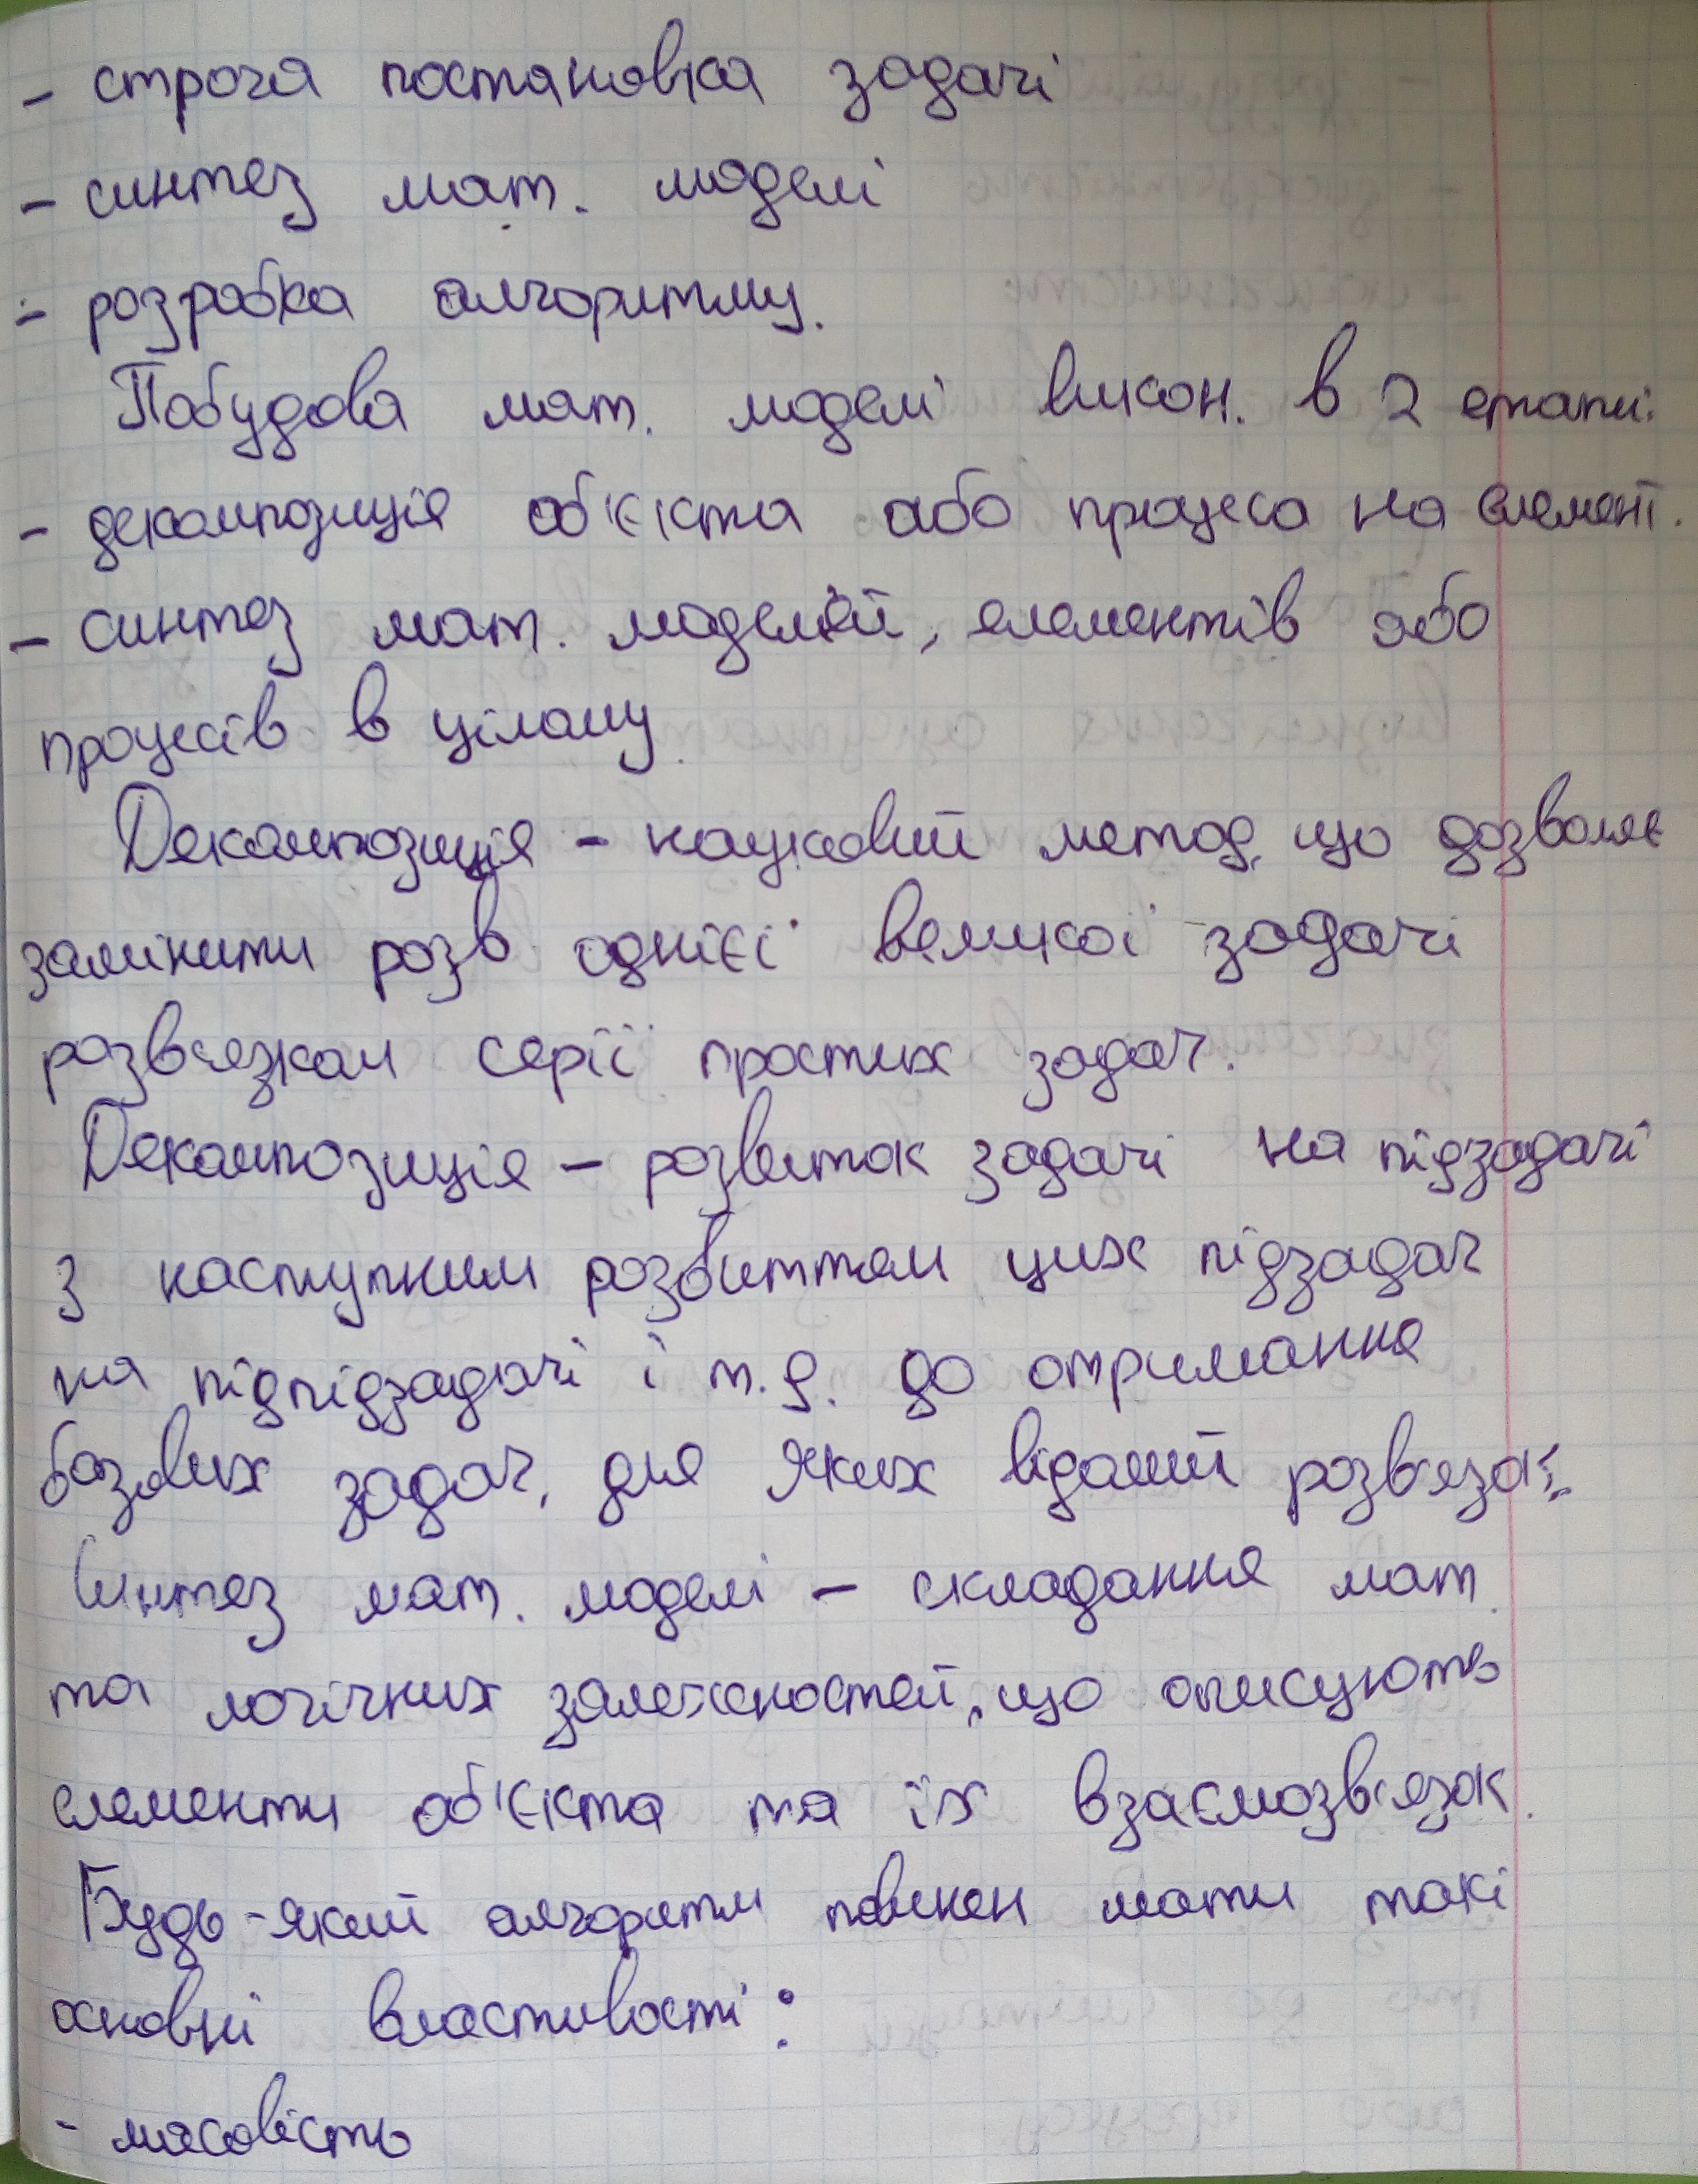 - строга постановка задачі
- синтез мат. моделі
- розробка алгоритму.
Побудова мат. моделі викон. в 2 етапи:
- декомпозиція об'єкта або процеса на елемент.
- синтез мат. моделей, елементів або
процесів в цілому.
Декомпозиція - науковий метод, що дозволяє
замінити розв однієї великої задачі
розв'язком серії простих задач.
Декомпозиція - розвиток задачі на підзадачі
з наступним розвиттям цих підзадач
на підпідзадачі і т.д. до отримання
базових задач, для яких відомий розв'язок.
Синтез мат. моделі - складання мат.
та логічних залежностей, що описують
елементи об'єкта та їх взаємозв'язок.
Будь-який алгоритм повинен мати такі
основні властивості:
- масовість